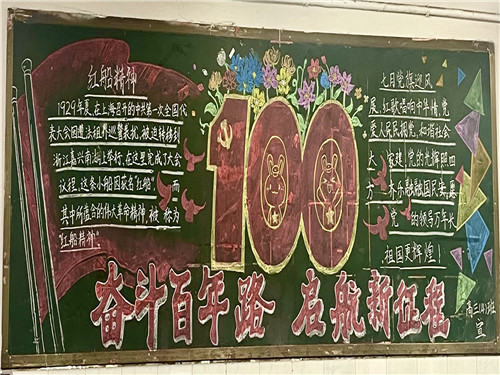 红船精神
1929年夏,在上海召开的中共第一次全国代
表大会因遭法租界巡警袭扰,被迫转移到
浙江嘉兴南湖上举行,在这里完成了大会
议程,这条小船因获名“红船”,而
其中所蕴含的伟大革命精神,被称为
“红船精神”。
100
七月党旗迎风
展,红歌唱响中华情,党
爱人民民拥党,和谐社会
大家建,党的光辉照四
方,齐乐融融国兴安,愿
党的领导万年长
,祖国更辉煌!
奋斗百年路 启航新征程
高三(4)班
宣